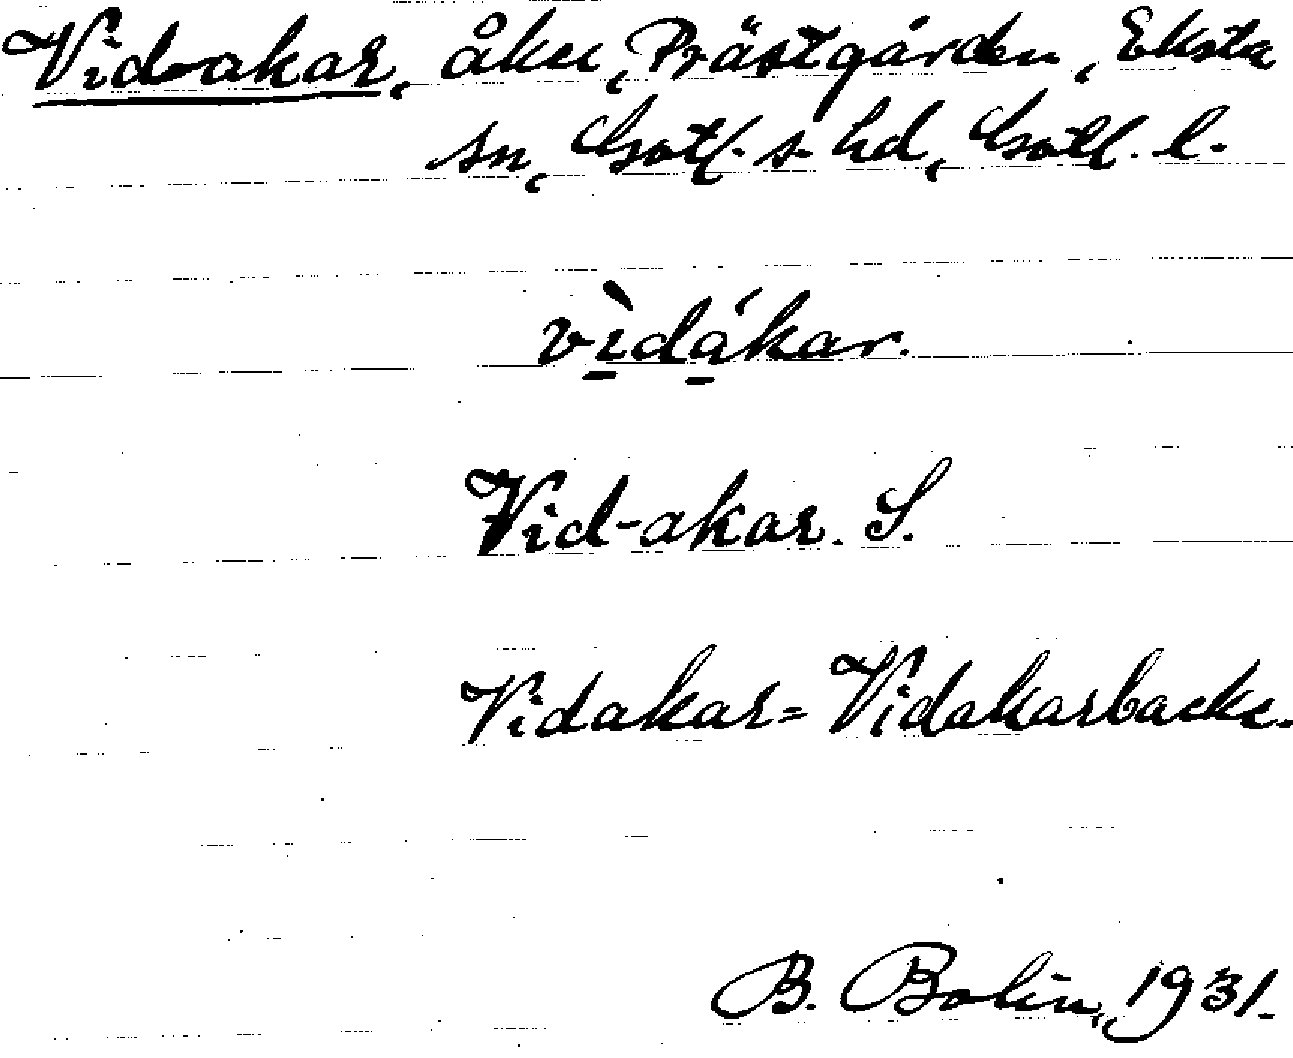 Vid-akar, åker, Prästgården, Eksta
sn, Gotl. s. hd, Gotl. l.
vìdákar.
Vid-akar. S.
Vidakar = Vidakarbacke.
B. Bolin, 1931.